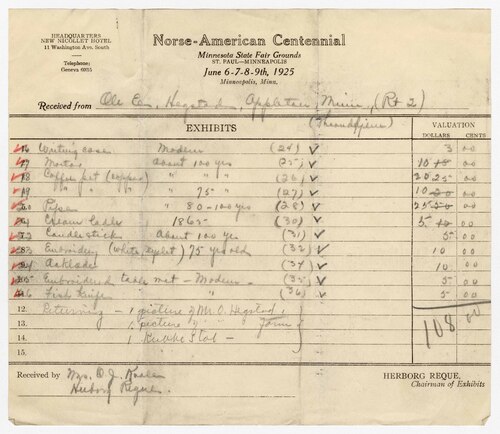 HEADQUARTERS
NEW NICOLLET HOTEL
11 Washington Ave. South
Telephone:
Geneva 6835
Norse-American Centennial
Minnesota State Fair Grounds
ST. PAUL—MINNEAPOLIS
June 6-7-8-9th, 1925
Minneapolis, Minn.
Received from Ole Hegstad, Appleton, Minn, (Rt 2)
EXHIBITS
VALUATION
DOLLARS CENTS
Writing case Modern (24) ✓ 3 00
Mortar About 100 yrs (25) ✓ 10 00
Coffee pot (copper) " " " (26) ✓ 25 00
" " " 75 " (27) ✓ 00
Pipe " 80-100 yrs (28) ✓ 00
Cream ladle 1865 (30) ✓ 5 00
Candlestick About 100 yrs (31) ✓ 5 00
Embroidery (white, eyelet) 75 yrs old (32) ✓ 10 00
(34) ✓ 10 00
Embroidered table mat - Modern (35) ✓ 5 00
Fish Knife " (36) ✓ 5 00
12. Returning - 1 picture of M. O. Hegstad
13. 1 picture " " farm
14. 1
15.
108 00
Received by Mrs. O. J.
Herborg Reque.
HERBORG REQUE,
Chairman of Exhibits